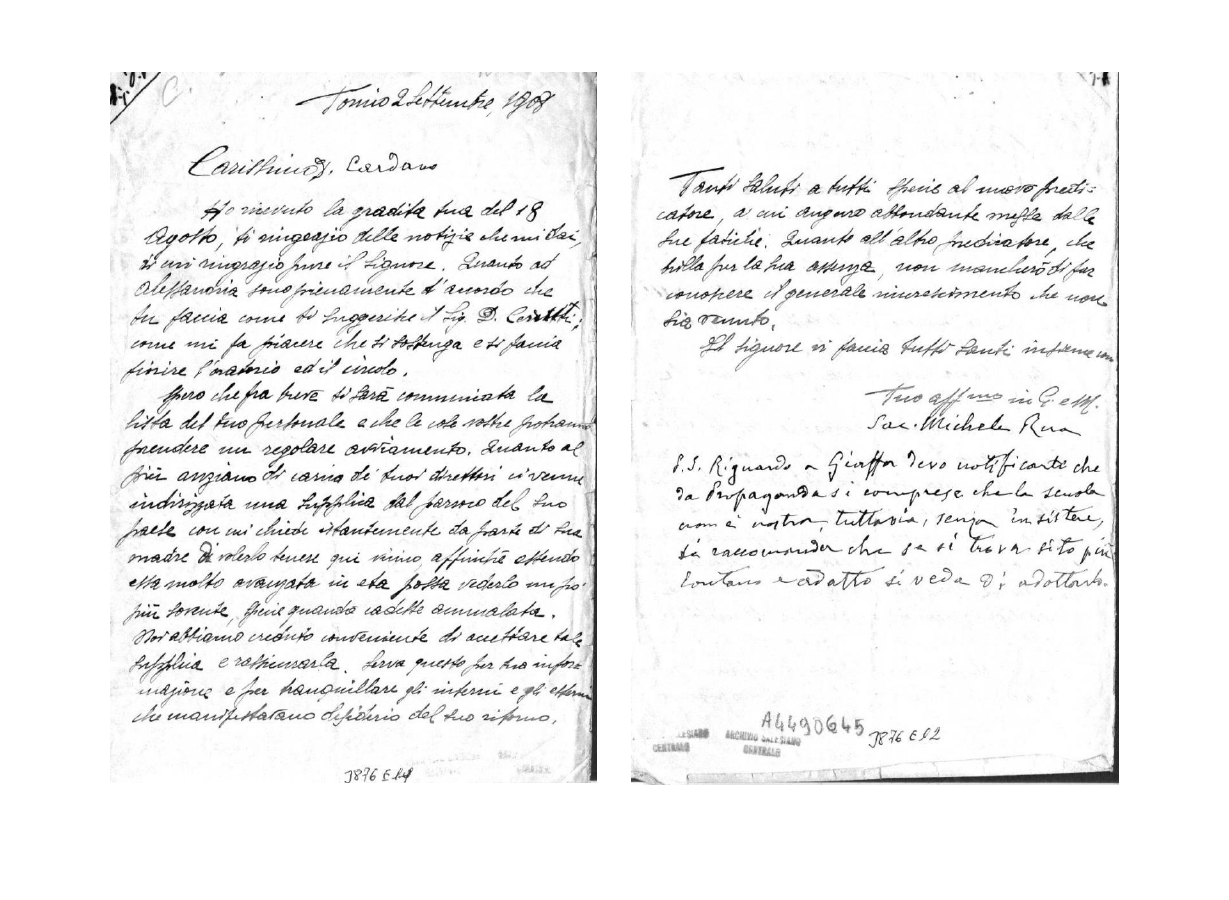 C.
Torino 2 Settembre, 1908
Carissimo D. Cardano
Ho ricevuto la gradita tua del 18
Agosto, ti ringrazio delle notizie che mi dai,
di cui ringrazio pure il Signore. Quanto ad
Alessandria sono pienamente d'accordo che
tu faccia come ti suggerisce il Sig. D.
come mi fa piacere che si sostenga e si faccia
fiorire l'oratorio ed il circolo.
Spero che fra breve ti sarà comunicata la
lista del tuo personale e che le cose vostre potranno
prendere un regolare avviamento. Quanto al
più anziano di carica dei tuoi direttori ci venne
indirizzata una supplica dal parroco del suo
paese con cui chiede istantemente da parte di sua
madre di volerlo tenere qui vicino, affinchè essendo
essa molto avanzata in età possa vederlo un po'
più sovente, specie quando cadesse ammalata.
Noi abbiamo creduto conveniente di accettare tale
supplica e rassicurarla. Serva questo per tua infor=
mazione e per tranquillare gli interni e gli esterni
che manifestavano desiderio del suo ritorno.
J876 E
Tanti saluti a tutti specie al nuovo predi=
catore, a cui auguro abbondante messe dalle
sue fatiche. Quanto all'altro predicatore, che
brilla per la sua assenza, non mancherò di far
conoscere il generale rincrescimento che non
sia venuto.
Il Signore vi faccia tutti santi insieme con
Tuo affmo in G. e M.
Sac. Michele Rua
P.S. Riguardo a Giaffa devo notificarte che
da Propaganda si comprese che la scuola
non è nostra, tuttavia, senza insistere,
si raccomanda che se si trova sito più
lontano e adatto si veda di adottarlo.
A4490645
J876 E 12
ARCHIVIO SALESIANO
CENTRALE